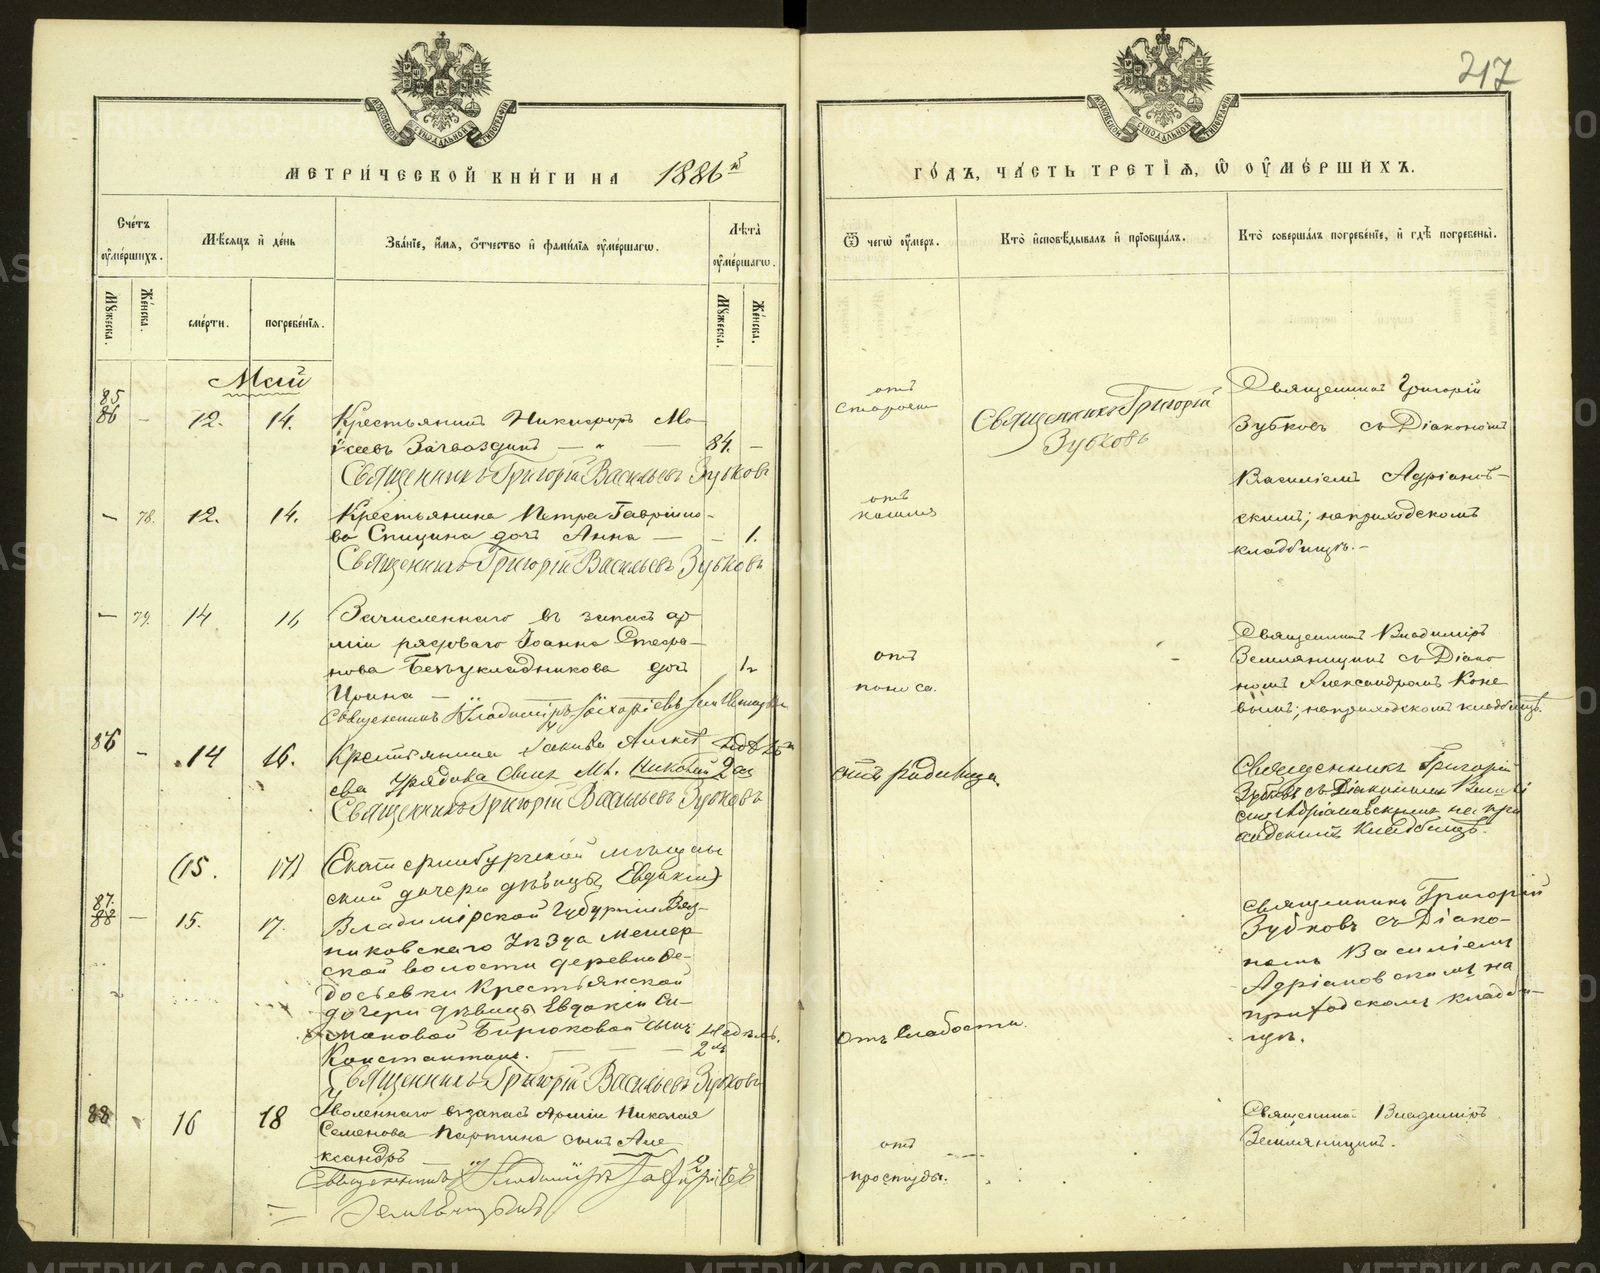 217
МОСКОВСКОЙ СѴНОДАЛЬНОЙ ТИПОГРАФІИ
МОСКОВСКОЙ СѴНОДАЛЬНОЙ ТИПОГРАФІИ
МЕТРИ́ЧЕСКОЙ КНИ́ГИ НА 1886 й
ГО́ДЪ, ЧА́СТЬ ТРЕТІЯ, Ѿ ОУ҆МЕ́РШИХЪ.
Сче́тъ оу҆ме́ршихъ.
Мѣ́сяцъ и҆ де́нь
Зва́ніе, и҆́мя, ѻ҆́тчество и҆ фами́лія оу҆ме́ршагѡ.
Лѣта̀ оу҆ме́ршагѡ.
Ѿ чегѡ̀ оу҆́меръ.
Кто̀ и҆сповѣ́дывалъ и҆ прїобща́лъ.
Кто̀ соверша́лъ погребе́ніе, и҆ гдѣ̀ погребены̀.
Мꙋ́жеска.
Же́нска.
сме́рти.
погребе́нїя.
Мꙋ́жеска.
Же́нска.
Май
85
86 – 12. 14. Крестьянинъ Никифоръ Мо-
исеевъ Загвоздинъ — „ — 84. –
Священникъ Григорій Васильевъ Зубковъ
отъ
старости
Священникъ Григорій
Зубковъ
Священникъ Григорій
Зубковъ съ Діакономъ
Василіемъ Адріанов-
скимъ; на приходскомъ
кладбищѣ. –
– 78. 12. 14. Крестьянина Петра Гаврило-
ва Спицина дочь Анна — – 1.
Священникъ Григорій Васильевъ Зубковъ
отъ
кашля
– 79. 14 16 Зачисленнаго въ запасъ ар-
міи рядоваго Іоанна Стефа-
нова Бекукладникова дочь
Ирина –
Священникъ Владиміръ
отъ
поноса.
Священникъ Владиміръ
Земляницинъ съ Діако-
номъ Александромъ Коне
вымъ; на приходскомъ кладбищѣ.
86 – 14 16. Крестьянина Іакова Алексе
ева Урядова сынъ Николай
Священникъ Григорій Васильевъ Зубковъ
отъ родимца
Священникъ Григорій
Зубковъ съ Діакономъ Васили
емъ Адріановскимъ на при
ходскомъ кладбищѣ.
(15. 17) (Екатеринбургской мѣщан
ской дочери дѣвицы Евдокіи)
87.
88 – 15. 17. Владимірской Губерніи Вяз-
никовскаго Уѣзда Мстер
ской волости деревни Ѳе-
досѣевки Крестьянской
дочери дѣвицы Евдокіи Си-
маковой Бирюковой сынъ
Константинъ. — 2
Священникъ Григорій Васильевъ Зубковъ
отъ слабости
Священникъ Григорій
Зубковъ съ Діако-
номъ Василіемъ
Адріановскимъ на
приходскомъ кладби-
щѣ.
88 16 18 Уволеннаго въ запасъ Арміи Николая
Семенова Паргина сынъ Але
ксандръ
Священникъ Владиміръ
отъ
простуды.
Священникъ Владиміръ
Земляницинъ.
METRIKI.GASO-URAL.RU